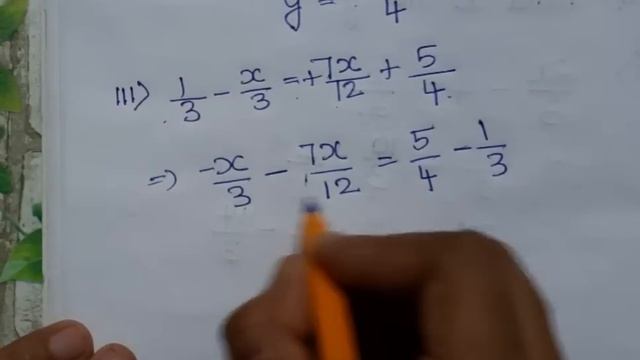 y = /4
III) 1/3 - x/3 = +7x/12 + 5/4
=> -x/3 - 7x/12 = 5/4 - 1/3